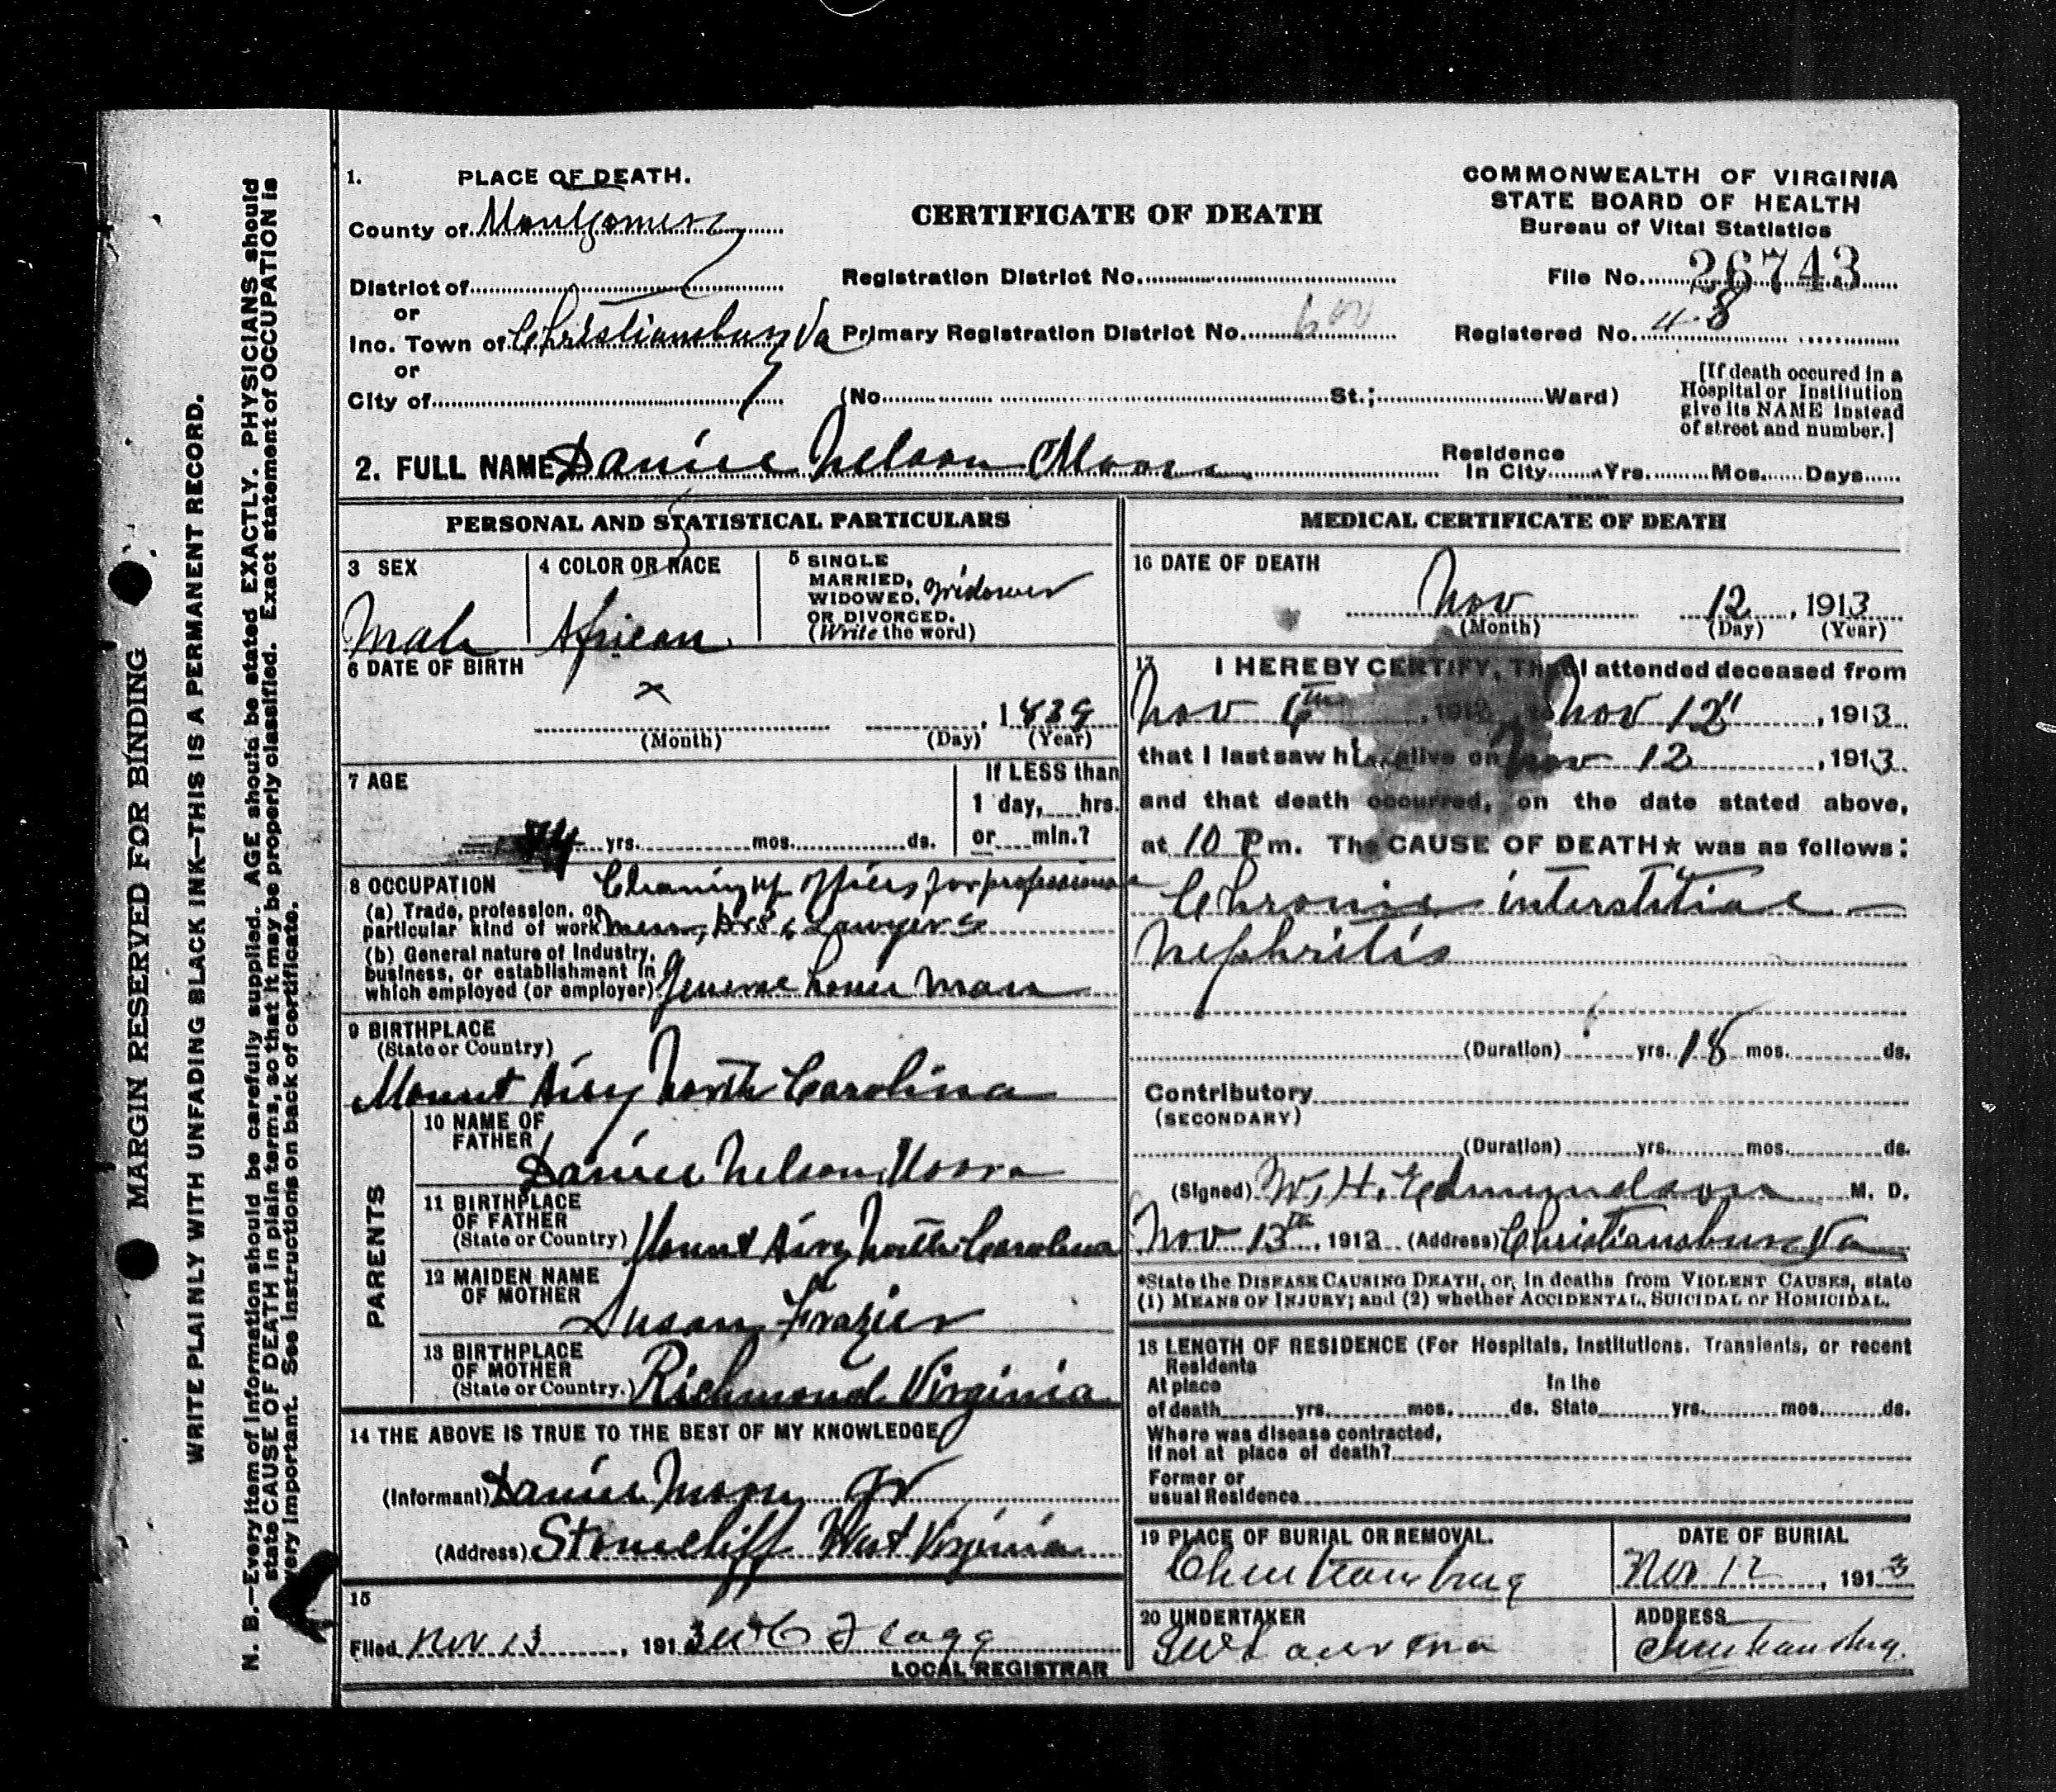 MARGIN RESERVED FOR BINDING
WRITE PLAINLY WITH UNFADING BLACK INK—THIS IS A PERMANENT RECORD.
N. B.—Every item of information should be carefully supplied. AGE should be stated EXACTLY. PHYSICIANS should
state CAUSE OF DEATH in plain terms, so that it may be properly classified. Exact statement of OCCUPATION is
very important. See instructions on back of certificate.
1. PLACE OF DEATH.
County of Montgomery
District of
or
Inc. Town of Christiansburg Va
or
City of
CERTIFICATE OF DEATH
Registration District No.
Primary Registration District No. 600
(No. St.; Ward)
COMMONWEALTH OF VIRGINIA
STATE BOARD OF HEALTH
Bureau of Vital Statistics
File No. 26743
Registered No. 48
[If death occured in a
Hospital or Institution
give its NAME instead
of street and number.]
2. FULL NAME Daniel Nelson Moore
Residence
In City Yrs. Mos. Days
PERSONAL AND STATISTICAL PARTICULARS
3 SEX
Male
4 COLOR OR RACE
African
5 SINGLE
MARRIED,
WIDOWED,
OR DIVORCED.
(Write the word)
Widower
6 DATE OF BIRTH
x , 1839
(Month) (Day) (Year)
7 AGE
74 yrs. mos. ds.
If LESS than
1 day, hrs.
or min.?
8 OCCUPATION
(a) Trade, profession, or
particular kind of work
Cleaning up offices for professional
men, Drs & Lawyers
(b) General nature of Industry,
business, or establishment in
which employed (or employer)
General man
9 BIRTHPLACE
(State or Country)
Mount Airy North Carolina
PARENTS
10 NAME OF
FATHER
Daniel Nelson Moore
11 BIRTHPLACE
OF FATHER
(State or Country) Mount Airy North Carolina
12 MAIDEN NAME
OF MOTHER
Susan Frazier
13 BIRTHPLACE
OF MOTHER
(State or Country.) Richmond Virginia
14 THE ABOVE IS TRUE TO THE BEST OF MY KNOWLEDGE
(Informant) Daniel Moore Jr
(Address) Stonecliff West Virginia
15
Filed Nov 13, 1913 Flagg
LOCAL REGISTRAR
MEDICAL CERTIFICATE OF DEATH
16 DATE OF DEATH
Nov 12, 1913
(Month) (Day) (Year)
17 I HEREBY CERTIFY, That I attended deceased from
Nov 6th, 1913, to Nov 12", 1913
that I last saw him alive on Nov 12, 1913
and that death occurred, on the date stated above,
at 10 P m. The CAUSE OF DEATH* was as follows:
Chronic interstitial
Nephritis
(Duration) yrs. 18 mos. ds.
Contributory
(SECONDARY)
(Duration) yrs. mos. ds.
(Signed) W. H. Edmundson M. D.
Nov 13th, 1913 (Address) Christiansburg Va
*State the DISEASE CAUSING DEATH, or, in deaths from VIOLENT CAUSES, state
(1) MEANS OF INJURY; and (2) whether ACCIDENTAL, SUICIDAL or HOMICIDAL.
18 LENGTH OF RESIDENCE (For Hospitals, Institutions, Transients, or recent
Residents
At place In the
of death yrs. mos. ds. State yrs. mos. ds.
Where was disease contracted,
If not at place of death?
Former or
usual Residence
19 PLACE OF BURIAL OR REMOVAL.
Christiansburg
DATE OF BURIAL
Nov 12, 1913
20 UNDERTAKER
ADDRESS
Christiansburg